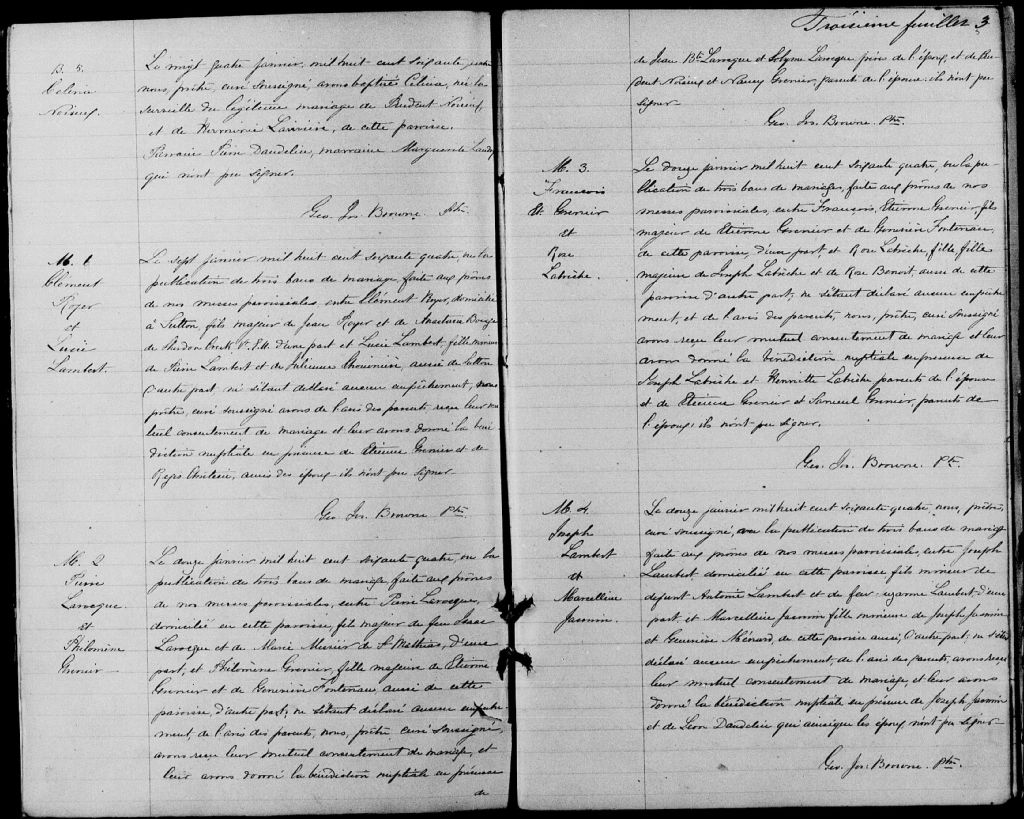 B. 5.
Celenia
Noiseux
Le vingt quatre janvier, mil huit cent soixante quatre
nous, prêtre, curé soussigné, avons baptisé Celina, née la
surveille du légitime mariage de Prudent Noiseux
et de Hermenie Larivière, de cette paroisse.
Parrain Pierre Daudelin, marraine Marguerite Landry
qui n'ont pu signer.
Geo. Jos. Browne. Ptre.
M. 1
Clément
Royer
et
Lucie
Lambert.
Le sept janvier mil huit cent soixante quatre, vu la
publication de trois bans de mariage faite aux prônes
de nos messes paroissiales, entre Clément Royer, domicilié
à Sutton fils majeur de Jean Royer et de Anastasie
de d'une part et Lucie Lambert, fille mineure
de Pierre Lambert et de Julienne aussi de Sutton
d'autre part, ne s'étant déclaré aucun empêchement, nous
prêtre, curé soussigné avons de l'avis des parents reçu leur mu
tuel consentement de mariage et leur avons donné la béné
diction nuptiale en présence de Etienne Grenier et de
Regis amis des époux ils n'ont pu signer
Geo. Jos. Browne Ptre.
M. 2
Pierre
Larocque.
et
Philomène
Grenier
Le douze janvier mil huit cent soixante quatre, vu la
publication des trois bans de mariage, faite aux prônes
de nos messes paroissiales, entre Pierre Larocque,
domicilié en cette paroisse, fils majeur de feu Isaac
Larocque et de Marie Messier de St Mathias, d'une
part, et Philomène Grenier, fille majeure de Etienne
Grenier et de Geneviève Fonteneau, aussi de cette
paroisse, d'autre part; ne s'étant déclaré aucun empêche-
ment, de l'avis des parents, nous, prêtre curé soussigné,
avons reçu leur mutuel consentement de mariage, et
leur avons donné la bénédiction nuptiale en présence
de
Troisième feuillet 3
de Jean Bte Larocque et Solyme Larocque frère de l'époux, et de Pru
dent Noiseux et Nancy Grenier, parents de l'épouse; ils n'ont pu
signer
Geo. Jos. Browne Ptre.
M. 3.
Francois
Et. Grenier
et
Rose
Labrèche.
Le douze janvier mil huit cent soixante quatre, vu la pu-
blication de trois bans de mariage, faite aux prônes de nos
messes paroissiales, entre François, Etienne Grenier, fils
majeur de Etienne Grenier et de Geneviève Fonteneau,
de cette paroisse, d'une part, et Rose Labrèche, fille fille
majeure de Joseph Labrèche et de Rose Benoit, aussi de cette
paroisse d'autre part; ne s'étant déclaré aucun empêche
ment, et de l'avis des parents, nous, prêtre, curé soussigné
avons reçu leur mutuel consentement de mariage et leur
avons donné la bénédiction nuptiale en présence de
Joseph Labrèche et Henriette Labrèche parents de l'épouse
et de Etienne Grenier et Samuel Grenier, parents de
l'époux; ils n'ont pu signer.
Geo. Jos. Browne. Ptre.
M. 4.
Joseph
Lambert
et
Marcelline
Jasmin.
Le douze janvier mil huit cent soixante quatre, nous, prêtre,
curé soussigné, vu la publication de trois bans de mariage
faite aux prônes de nos messes paroissiales, entre Joseph
Lambert domicilié en cette paroisse fils mineur de
défunt Antoine Lambert et de feue Suzanne Lambert, d'une
part et Marcelline Jasmin fille mineure de Joseph Jasmin
et Geneviève Ménard, de cette paroisse aussi, d'autre part; ne s'étant
déclaré aucun empêchement, de l'avis des parents, avons reçu
leur mutuel consentement de mariage, et leur avons
donné la bénédiction nuptiale en présence de Joseph Jasmin
et de Léon Daudelin qui ainsi que les époux n'ont pu signer
Geo. Jos. Browne. Ptre.